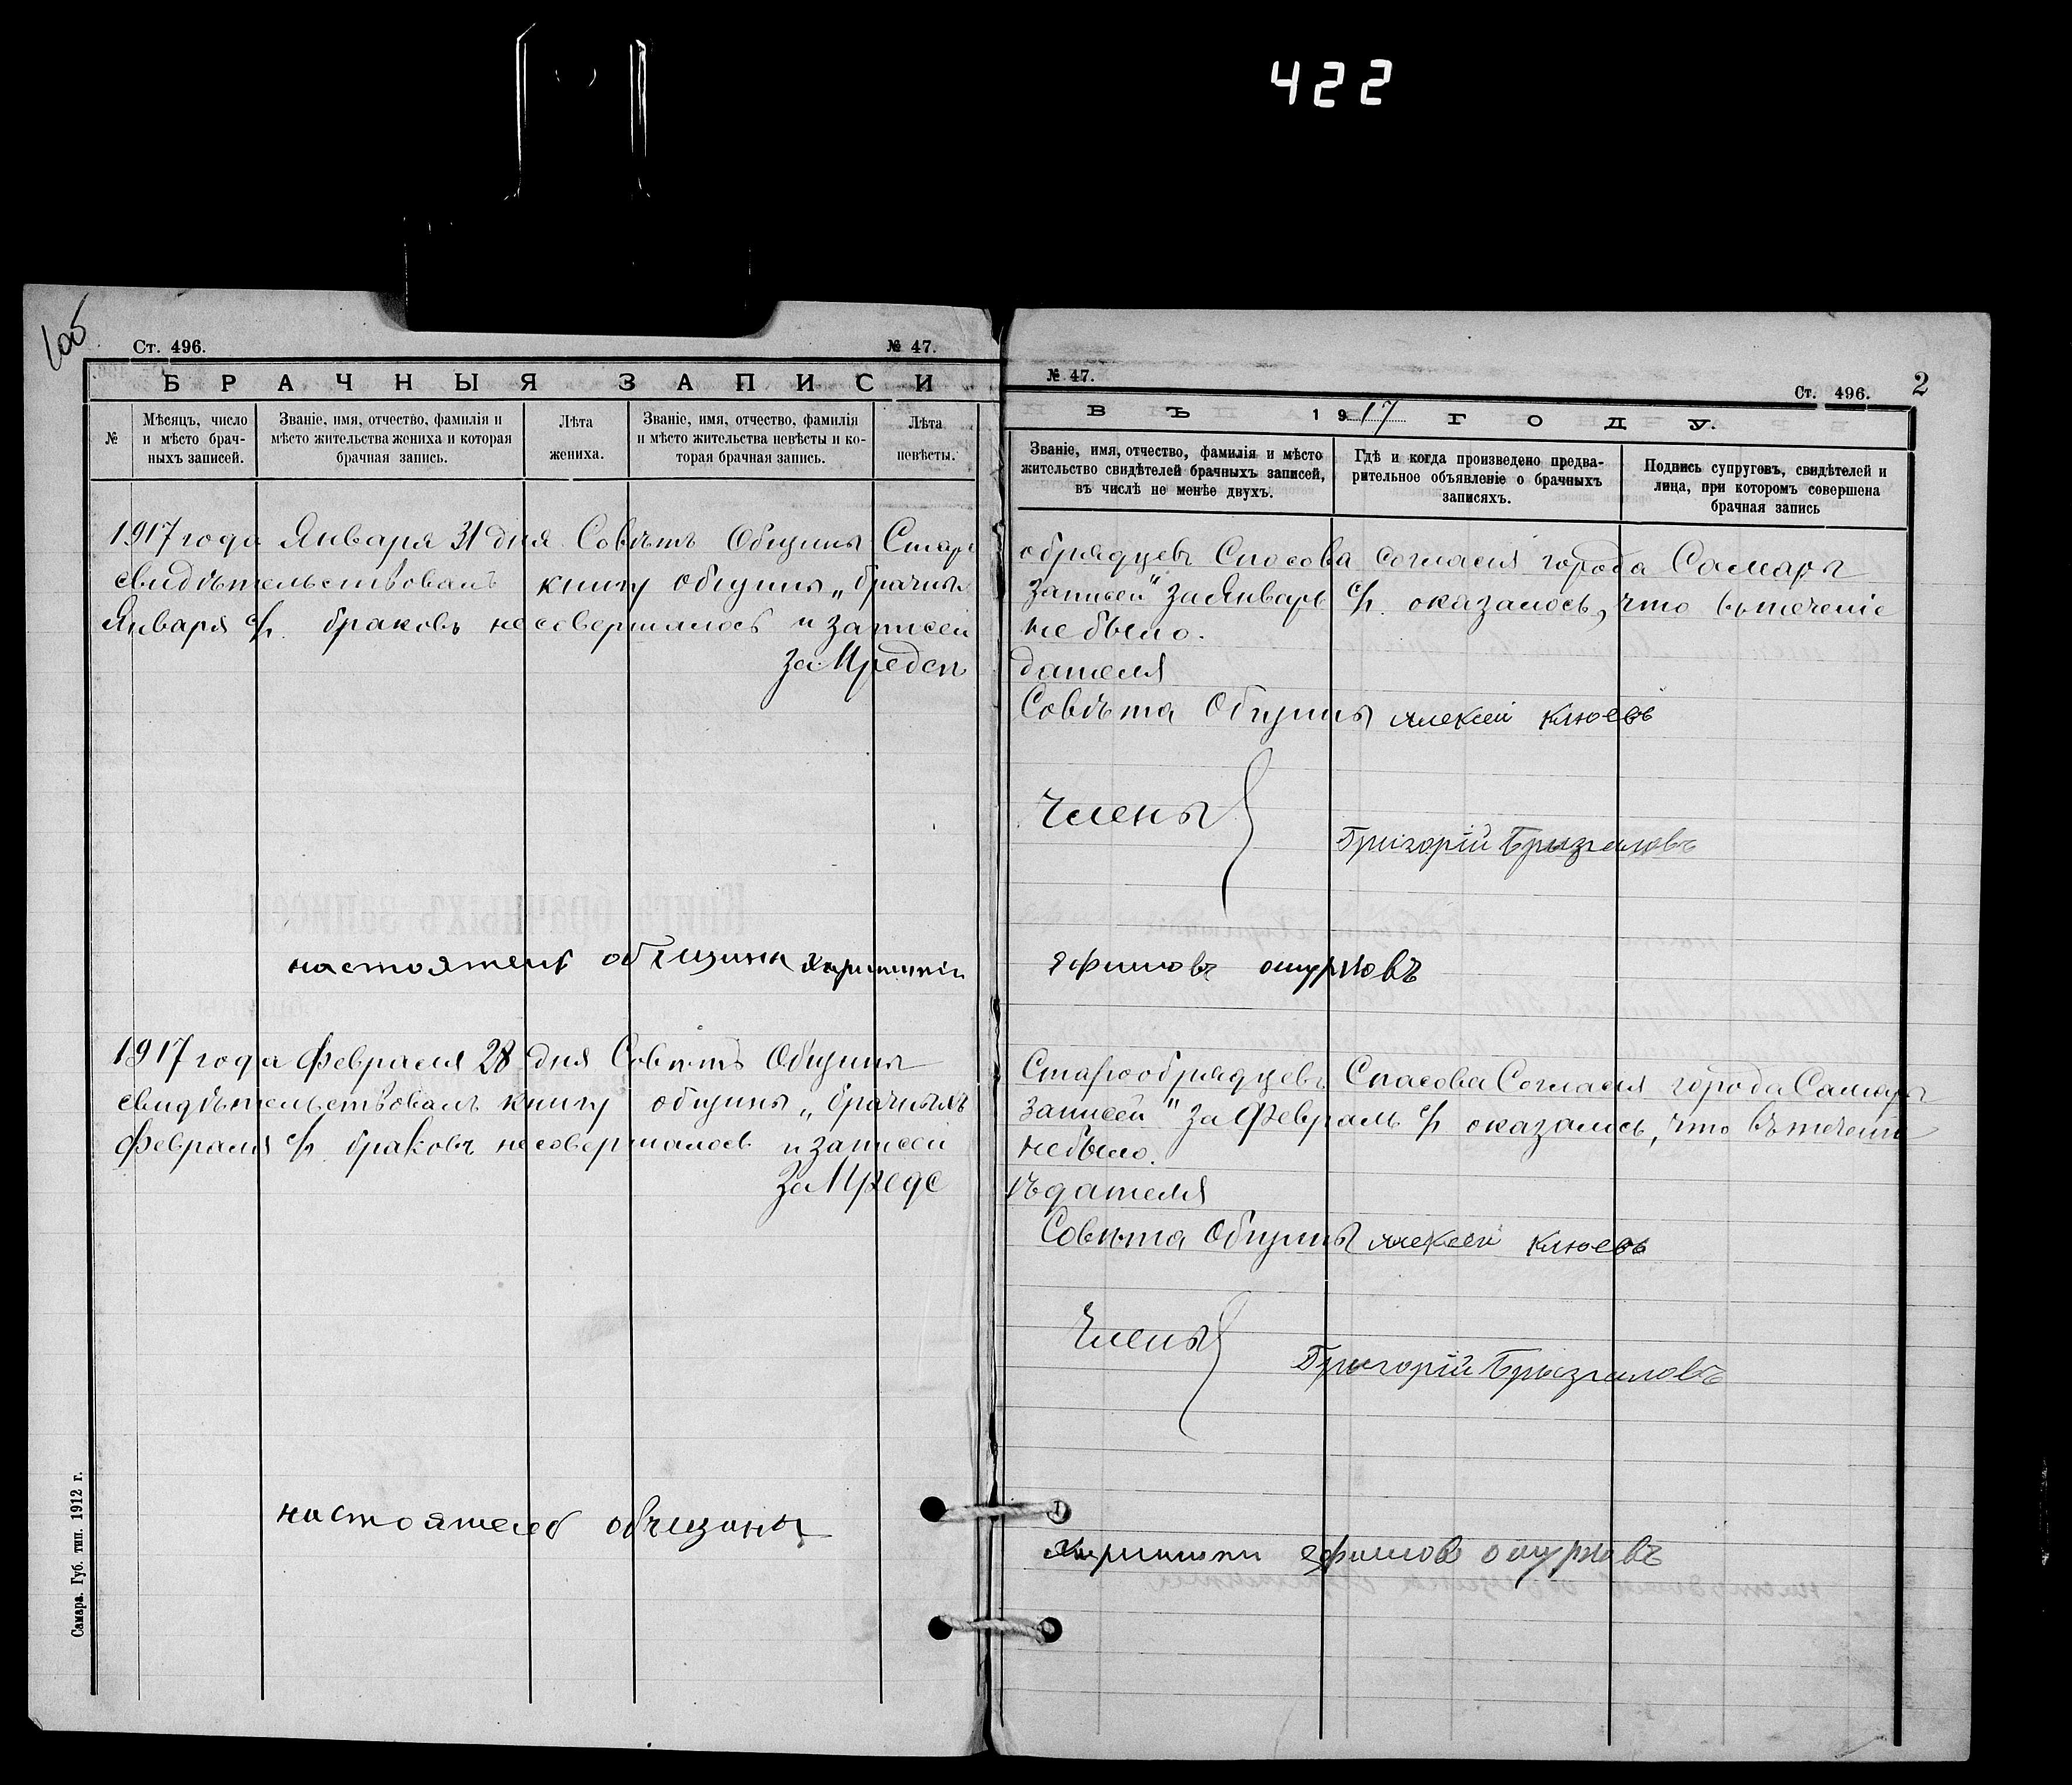 422
Ст. 496.
№ 47.
БРАЧНЫЯ ЗАПИСИ
№
Мѣсяцъ, число
и мѣсто брач-
ныхъ записей.
Званіе, имя, отчество, фамилія и
мѣсто жительства жениха и которая
брачная запись.
Лѣта
жениха.
Званіе, имя, отчество, фамилія
и мѣсто жительства невѣсты и ко-
торая брачная запись.
Лѣта
невѣсты.
1917 года Января 31 дня Совѣтъ Общины Старо
свидѣтельствовалъ книгу общины „брачныхъ
Января с/г. браковъ несовершалось и записей
За Предсѣ
настоятель общины
1917 года Февраля 28 дня Совѣтъ Общины
свидѣтельствовалъ книгу общины „брачныхъ
Февраля с/г. браковъ несовершалось и записей
За Предс
настоятель общины
Самара. Губ. тип. 1912 г.
№ 47.
Ст. 496.
2
ВЪ 1917 ГОДУ.
Званіе, имя, отчество, фамилія и мѣсто
жительство свидѣтелей брачныхъ записей,
въ числѣ не менѣе двухъ.
Гдѣ и когда произведено предва-
рительное объявленіе о брачныхъ
записяхъ.
Подпись супруговъ, свидѣтелей и
лица, при которомъ совершена
брачная запись
обрядцевъ Спасова согласія города Самары
записей" за Январь с/г. оказалось, что въ теченіе
не было.
дателя
Совѣта Общины Алексей Клюевъ
Члены
Григорій Брызгаловъ
Старообрядцевъ Спасова Согласія города Самары
записей" за Февраль с/г. оказалось, что въ теченіи
не было.
ѣдателя
Совѣта Общины Алексей Клюевъ
Члены
Григорій Брызгаловъ